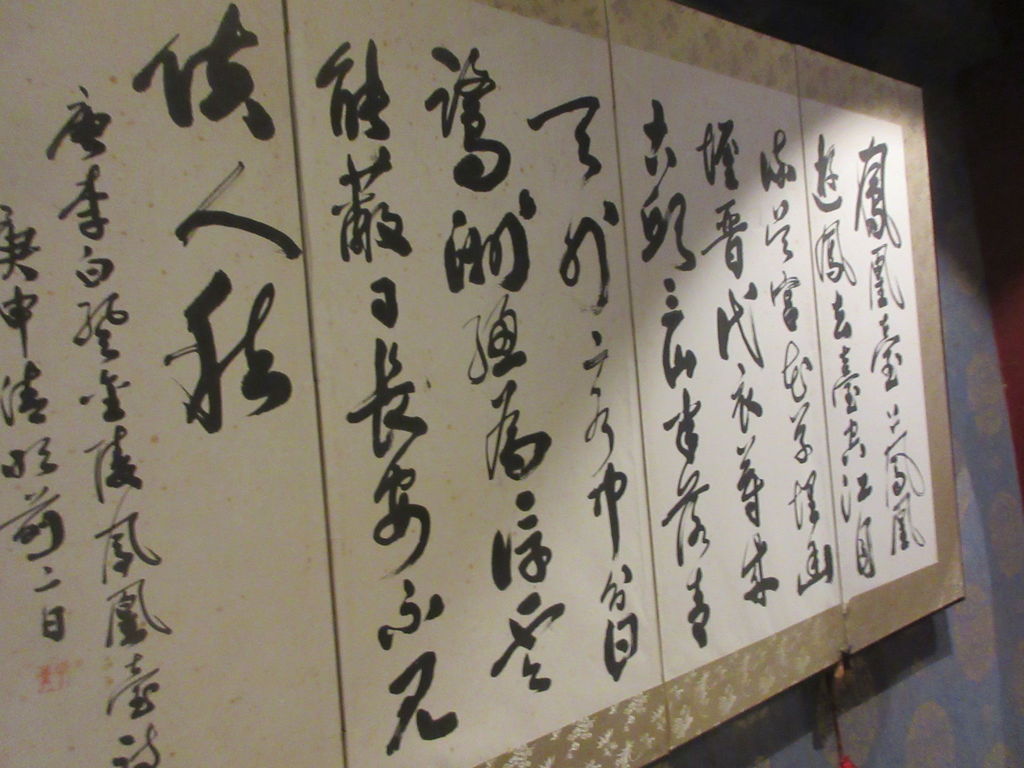 鳳凰臺上鳳凰
遊鳳去臺空江自
流吳宮花草埋幽
徑晉代衣冠成
古邱三山半落青
天外二水中分白
鷺洲總為浮雲
能蔽日長安不見
使人愁
唐李白登金陵鳳凰臺詩
庚申清明前二日